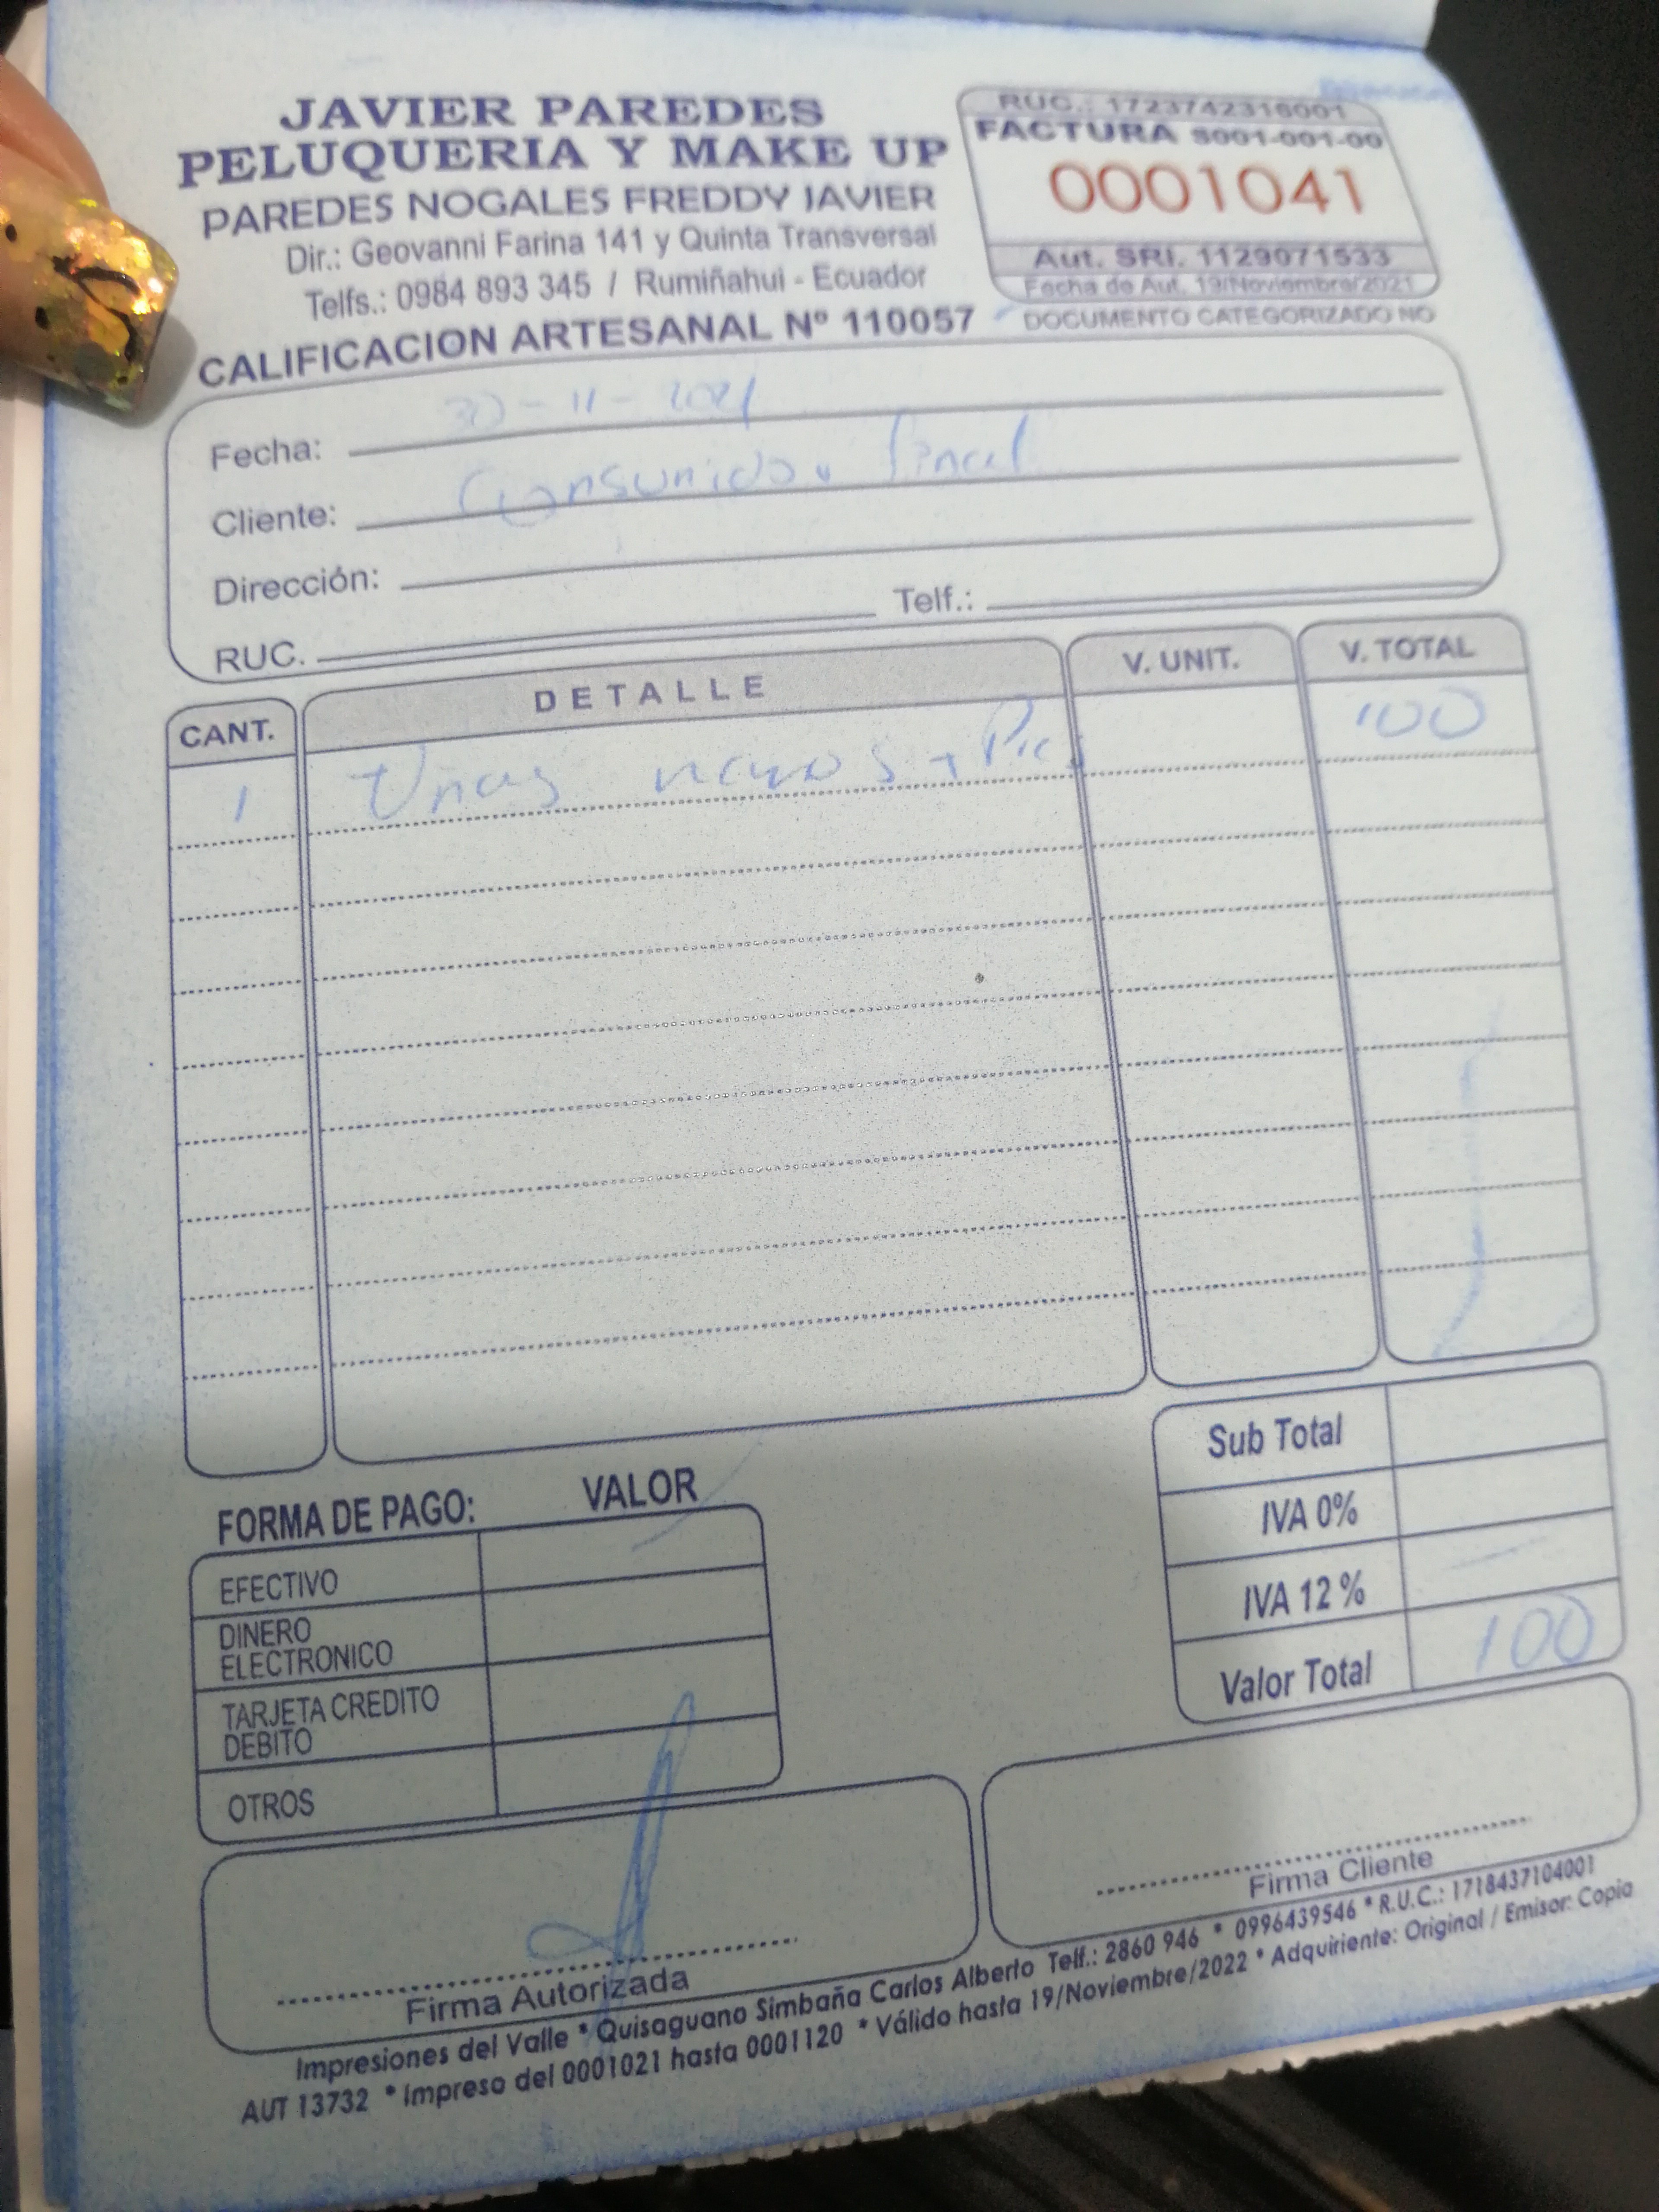 JAVIER PAREDES
PELUQUERIA Y MAKE UP
PAREDES NOGALES FREDDY JAVIER
Dir.: Geovanni Farina 141 y Quinta Transversal
Telfs.: 0984 893 345 / Rumiñahui - Ecuador
CALIFICACION ARTESANAL Nº 110057
RUC.: 1723742316001
FACTURA S001-001-00
0001041
Aut. SRI. 1129071533
Fecha de Aut. 19/Noviembre/2021
DOCUMENTO CATEGORIZADO NO
Fecha: 30-11-2021
Cliente: Consumidor final
Dirección:
RUC. Telf.:
CANT. DETALLE V. UNIT. V. TOTAL
1 Unas manos + Pies 100
FORMA DE PAGO: VALOR
EFECTIVO
DINERO
ELECTRONICO
TARJETA CREDITO
DEBITO
OTROS
Sub Total
IVA 0%
IVA 12 %
Valor Total 100
Firma Autorizada
Firma Cliente
Impresiones del Valle * Quisaguano Simbaña Carlos Alberto Telf.: 2860 946 * 0996439546 * R.U.C.: 1718437104001
AUT 13732 * Impreso del 0001021 hasta 0001120 * Válido hasta 19/Noviembre/2022 * Adquiriente: Original / Emisor: Copia